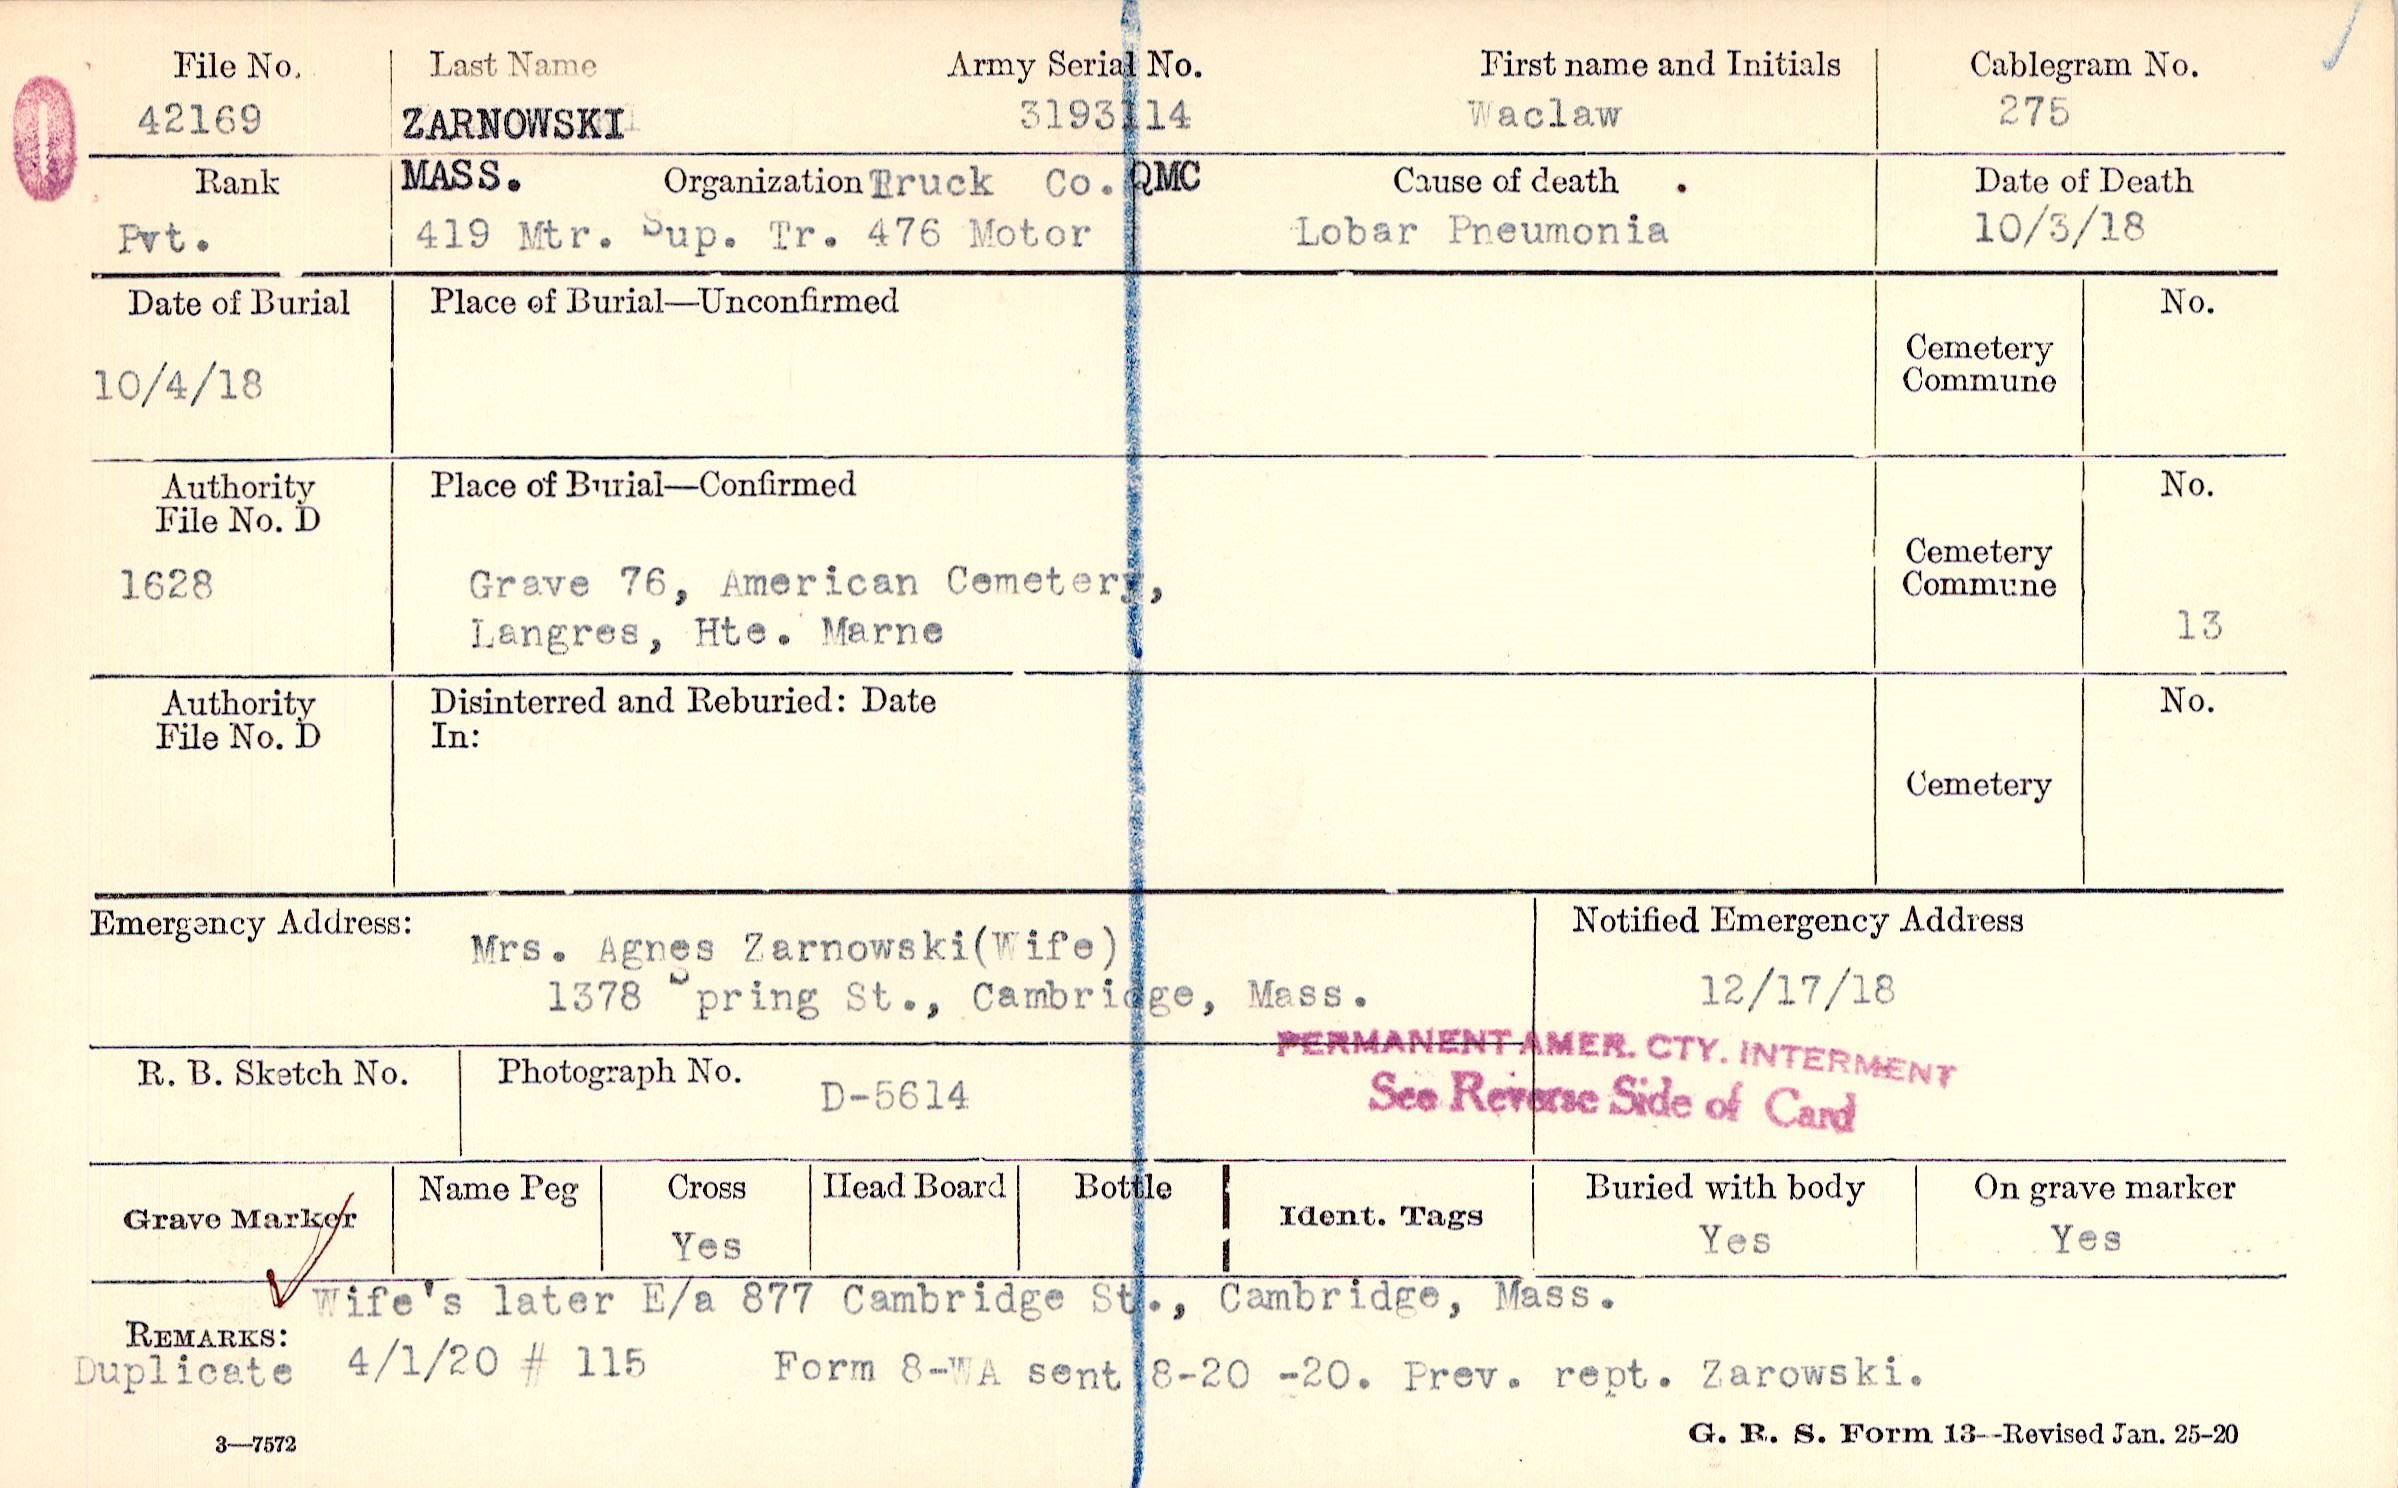 File No. Last Name Army Serial No. First name and Initials Cablegram No.
42169 ZARNOWSKI 3193114 Waclaw 275
Rank MASS. Organization Truck Co. QMC Cause of death Date of Death
Pvt. 419 Mtr. Sup. Tr. 476 Motor Lobar Pneumonia 10/3/18
Date of Burial Place of Burial—Unconfirmed No.
Cemetery
Commune
10/4/18
Authority Place of Burial—Confirmed No.
File No. D
Cemetery
Commune
1628 Grave 76, American Cemetery,
Langres, Hte. Marne 13
Authority Disinterred and Reburied: Date No.
File No. D In:
Cemetery
Emergency Address: Notified Emergency Address
Mrs. Agnes Zarnowski(Wife)
1378 Spring St., Cambridge, Mass. 12/17/18
PERMANENT AMER. CTY. INTERMENT
See Reverse Side of Card
R. B. Sketch No. Photograph No. D-5614
Grave Marker Name Peg Cross Head Board Bottle Ident. Tags Buried with body On grave marker
Yes Yes Yes
Wife's later E/a 877 Cambridge St., Cambridge, Mass.
REMARKS:
Duplicate 4/1/20 # 115 Form 8-WA sent 8-20 -20. Prev. rept. Zarowski.
3—7572 G. R. S. Form 13--Revised Jan. 25-20